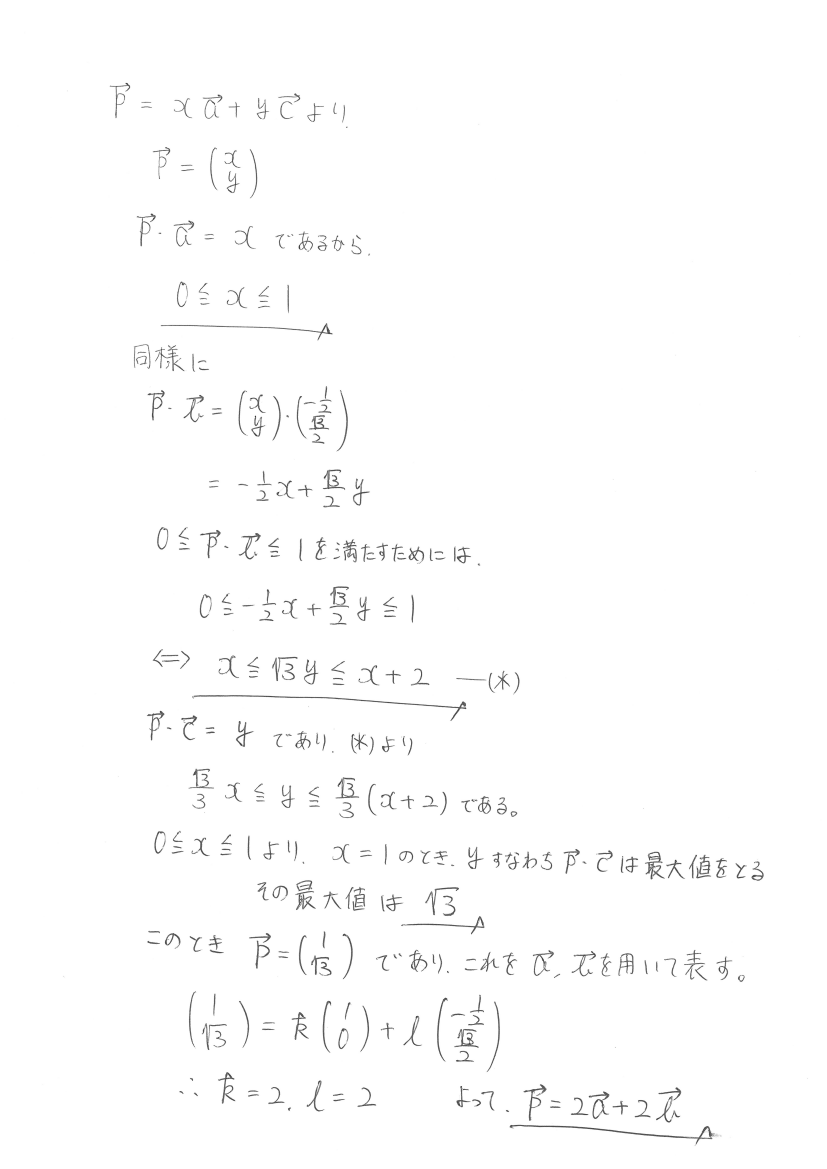 p⃗ = x a⃗ + y c⃗ より
p⃗ = (x y)
p⃗・a⃗ = x であるから.
0 ≦ x ≦ 1
同様に
p⃗・b⃗ = (x y)・(-1/2 √3/2)
= -1/2 x + √3/2 y
0 ≦ p⃗・b⃗ ≦ 1 を満たすためには.
0 ≦ -1/2 x + √3/2 y ≦ 1
⇔ x ≦ √3 y ≦ x + 2 —(*)
p⃗・c⃗ = y であり. (*)より
√3/3 x ≦ y ≦ √3/3 (x+2) である。
0 ≦ x ≦ 1 より. x = 1 のとき. y すなわち p⃗・c⃗ は最大値をとる
その最大値は √3
このとき p⃗ = (1 √3) であり. これを a⃗, b⃗ を用いて表す。
(1 √3) = k (1 0) + l (-1/2 √3/2)
∴ k = 2. l = 2 よって. p⃗ = 2a⃗ + 2b⃗